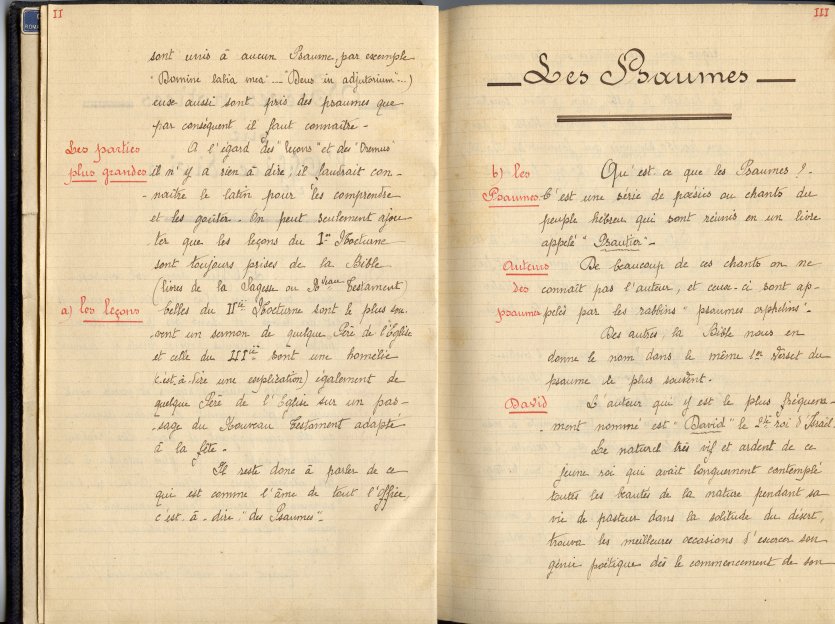 II
sont unis à aucun Psaume, par exemple
"Domine labia mea"... "Deus in adjutorium"...)
ceux aussi sont pris des psaumes que
par conséquent il faut connaître -
Les parties
plus grandes
A l'égard des "leçons" et des "Oremus"
il n'y a rien à dire, il faudrait con-
- naître le latin pour les comprendre
et les goûter. On peut seulement ajou-
ter que les leçons du Ier Nocturne
sont toujours prises de la Bible
(livres de la Sagesse ou Nveau Testament)
a) les leçons
Celles du IIe Nocturne sont le plus sou-
-vent un sermon de quelque Père de l'Eglise
et celle du IIIe sont une homélie
(c'est-à-dire une explication) également de
quelque Père de l'Eglise sur un pas-
-sage du Nouveau Testament adapté
à la fête -
Il reste donc à parler de ce
qui est comme l'âme de tout l'office,
c'est-à-dire "des Psaumes"-
III
Les Psaumes
b) les
Psaumes
Qu'est ce que les Psaumes ?.
C'est une série de poésies ou chants du
peuple hébreu qui sont réunis en un livre
appelé "Psautier"-
Auteurs
des
psaumes
De beaucoup de ces chants on ne
connaît pas l'auteur, et ceux-ci sont ap-
pelés par les rabbins "psaumes orphelins"-
Des autres, la Bible nous en
donne le nom dans le même 1er verset du
psaume le plus souvent.
David
L'auteur qui y est le plus fréquem-
- ment nommé est "David" le 2e roi d'Israël.
Le naturel très vif et ardent de ce
jeune roi qui avait longuement contemplé
toutes les beautés de la nature pendant sa
vie de pasteur dans la solitude du désert,
trouva les meilleures occasions d'exercer son
génie poétique dès le commencement de son